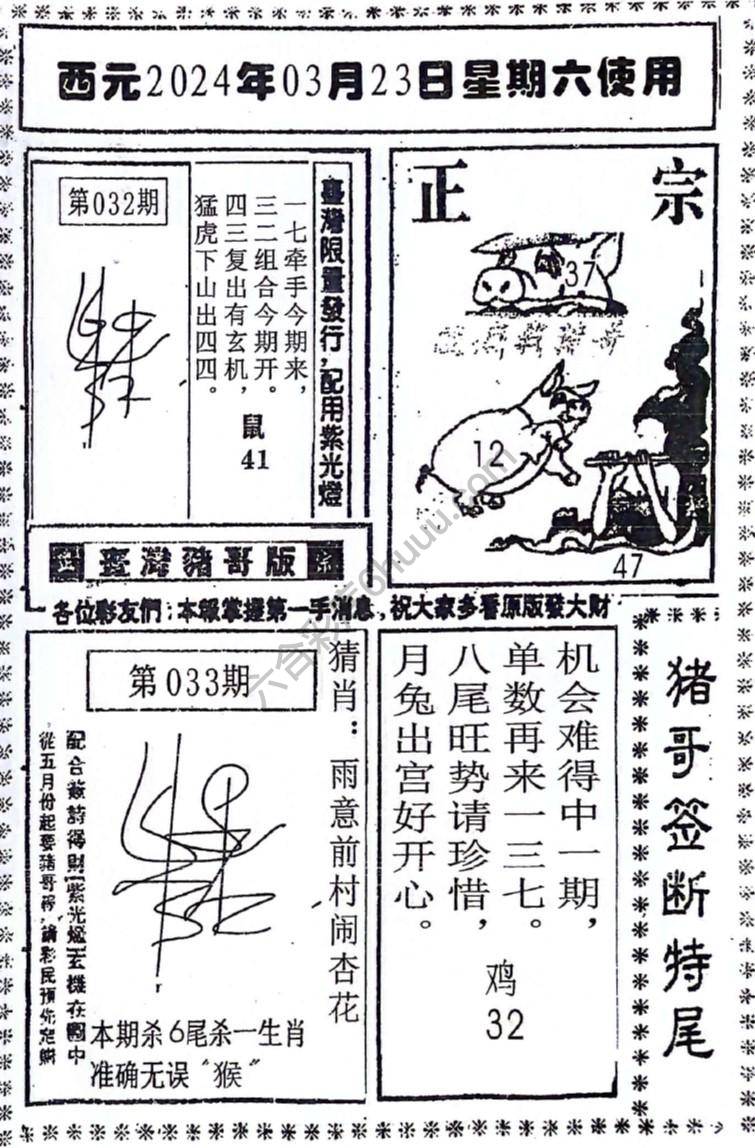 西元2024年03月23日星期六使用
第032期
臺灣限量發行,配用紫光燈
一七牽手今期来,
三二组合今期开。
四三复出有玄机,
猛虎下山出四四。
鼠
41
正宗
37
12
47
臺灣豬哥版
各位彩友們:本報掌握第一手消息,祝大家多看原版發大財
第033期
猜肖:雨意前村闹杏花
配合簽詩得財紫光燈玄機在圖中
從五月份起要豬哥彩民預先定購
本期杀6尾杀一生肖
准确无误“猴”
机会难得中一期,
单数再来一三七。
八尾旺势请珍惜,
月兔出宫好开心。
鸡
32
猪哥签断特尾
六合彩库6huuu.com